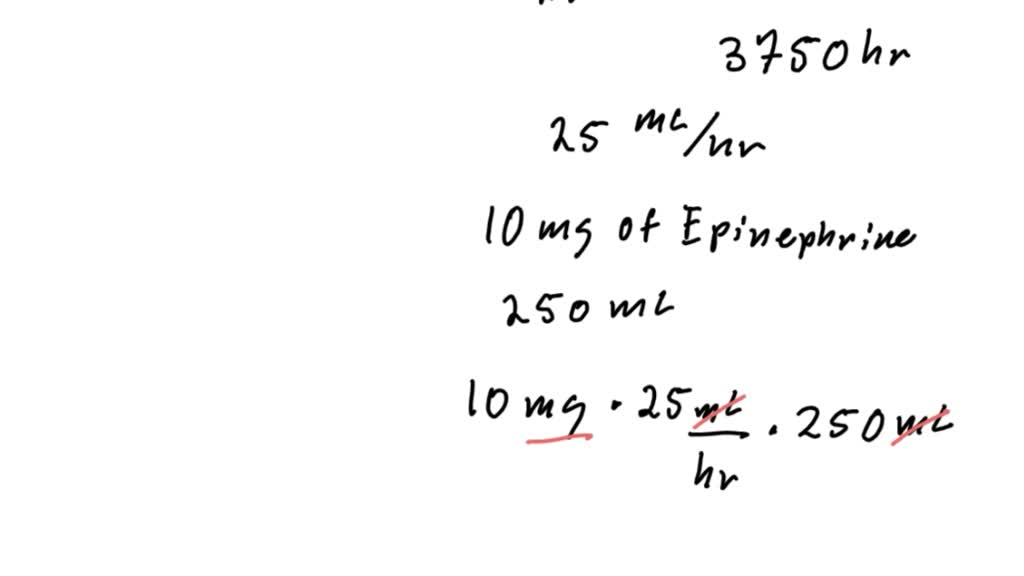 3750 hr
25 mL/hr
10 mg of Epinephrine
250 mL
10 mg · 25 mL/hr · 250 mL